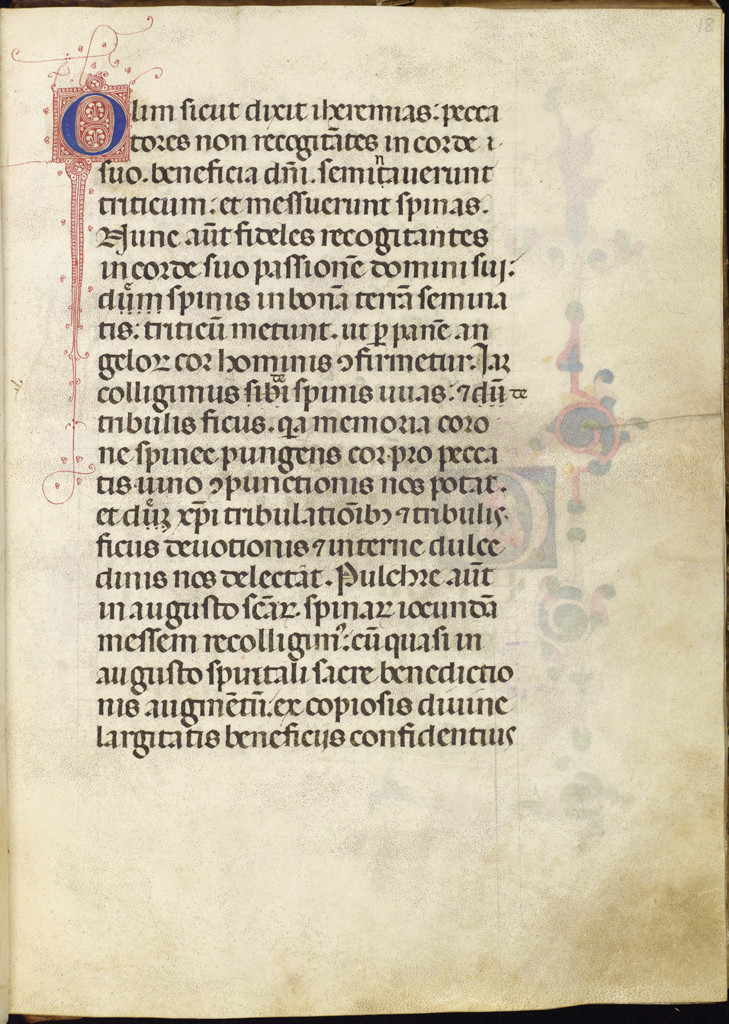 18
Olim sicut dixit iheremias: pecca
tores non recogitātes in corde i
suo. beneficia dn̄i. semitauerunt
triticum: et messuerunt spinas.
Nunc aūt fideles recogitantes
in corde suo passionē domini sui:
dū̄m spinis in bonā terrā semina
tis: triticū metunt. ut ꝑ panē an
geloꝝ cor hominis ꝯfirmetur. Iaꝝ
colligimus sibi de spinis uuas: ⁊ dū de
tribulis ficus. qͣ memoria coro
ne spinee pungens cor pro pecca
tis uino ꝯpunctionis nos potat.
et xp̄i tribulatiōibꝫ ⁊ tribulis
ficus deuotionis ⁊ interne dulce
dinis nos delectat. Pulchre aūt
in augusto scāꝝ spinaꝝ iocundā
messem recolligimꝰ: cū quasi in
augusto spiritali sacre benedictio
nis augmētū. ex copiosis diuine
largitatis beneficijs confidentius